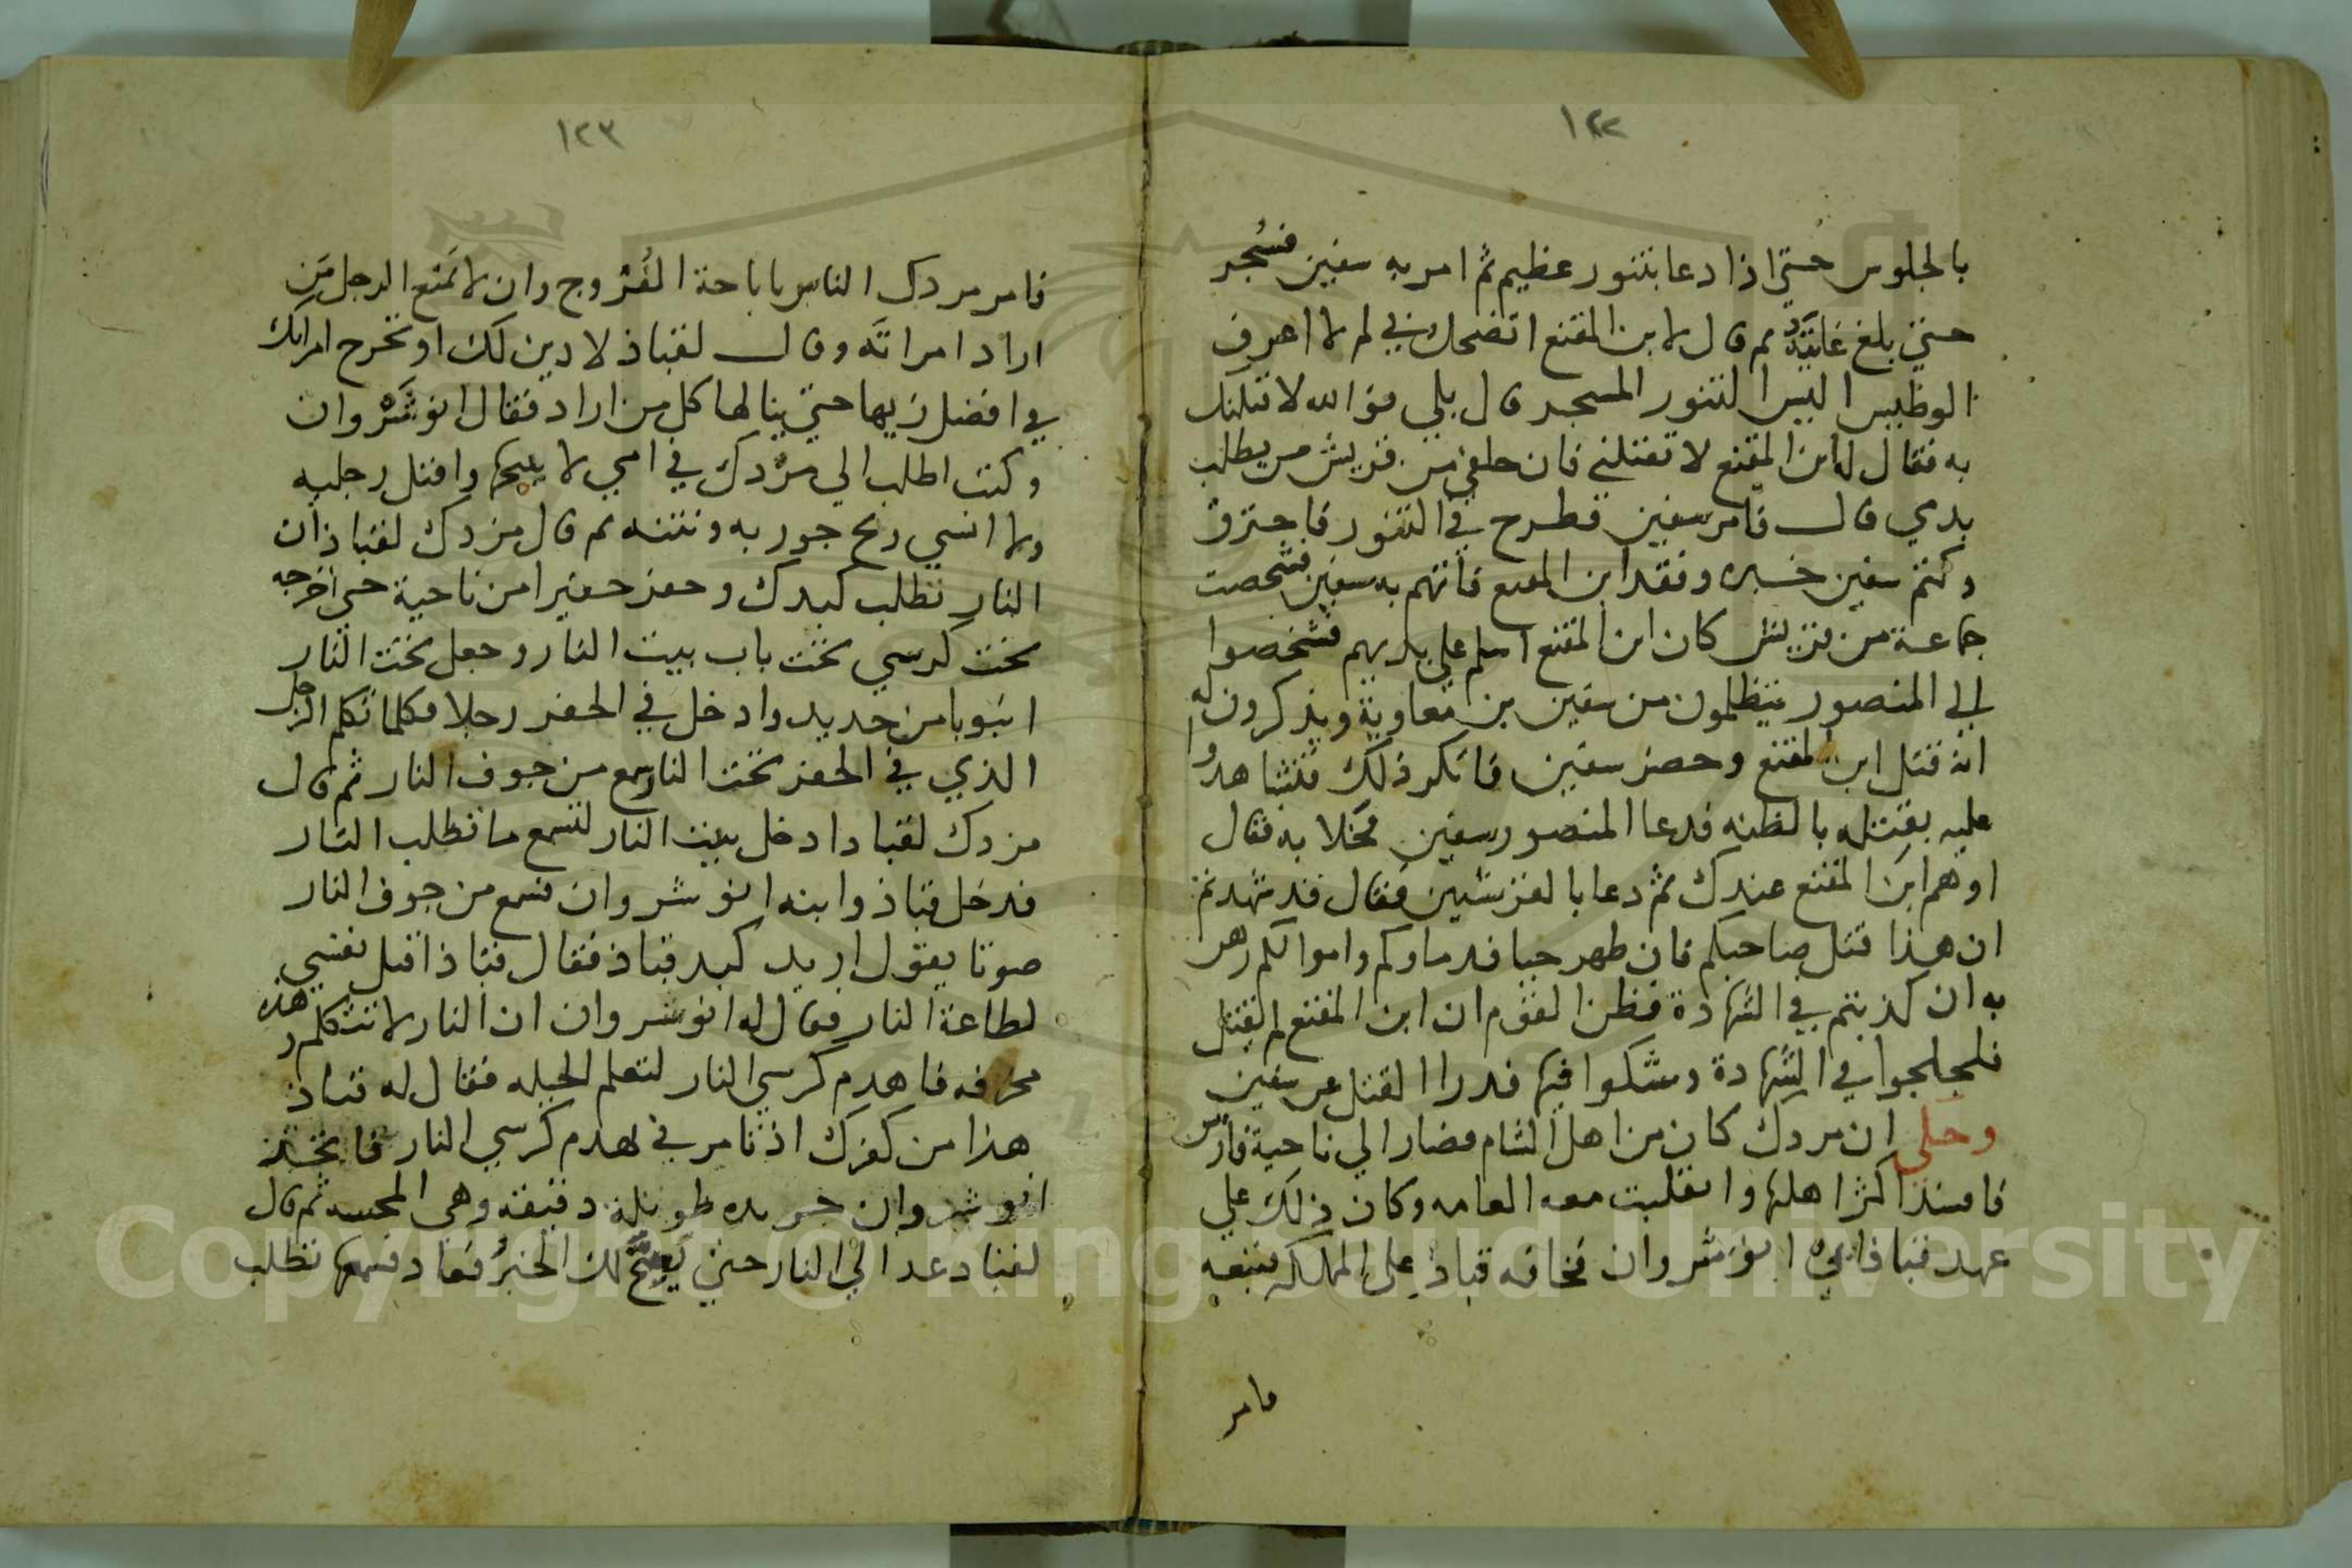 ١٢٢
بالجلوس حتي اذا دعا بتنور عظيم ثم امر به سفين فسُجر
حتي بلغ غايته ثم قال لابن المقنع اتضحك بي لم لا اعرف
الوطيس اليس التنور المسجر قال بلي فوالله لاقتلنك
به فقال له ابن المقنع لا تقتلني فان خلفي من قريش من يطلب
بدمي قال فامر سفين فطرح في التنور فاحترق
وكتم سفين خبره وفقد ابن المقنع فاتهم به سفين فشخصت
جماعة من قريش كان ابن المقنع اسلم علي يديهم فشخصوا
الي المنصور يتظلمون من سفين بن معاوية ويذكرون له
انه قتل ابن المقنع وحضر سفين فانكر ذلك فتشاهدوا
عليه بقتله بالظنه فدعا المنصور سفين فخلا به فقال
اوهم ابن المقنع عندك ثم دعا بالقرشيين فقال قد شهدتم
ان هذا قتل صاحبكم فان ظهر حيا فدماوكم واموالكم رهن
به ان كذبتم في الشهادة فظن القوم ان ابن المقنع لم يقتل
فلجلجوا في الشهادة وشكوا فيها فدرا القتل عن سفين
وحكي ان مردك كان من اهل الشام فصار الي ناحية فارس
فافسد اكثر اهلها وانقلبت معه العامه وكان ذلك علي
عهد قباذ ابي انوشروان فخافه قباذ علي المملكه فتبعه
فامر
١٢٣
فامر مردك الناس باباحة الفُرُوج وان لا تمنع الرجل من
اراد امراته وقال لقباذ لا دين لك او تخرج امراتك
في افضل زيها حتي ينالها كل من اراد فقال انوشروان
وكنت اطلب الي مزدك في امي لا يبيحها واقبل رجليه
ولا انسي ريح جوربه ونتنه ثم قال مزدك لقباذ ان
النار تطلب كبدك وحفر حفيرا من ناحية حتي اخرجه
تحت كرسي تحت باب بيت النار وجعل تحت النار
انبوبا من حديد وادخل في الحفر رجلا فكلما تكلم الرجل
الذي في الحفر تحت النار سمع من جوف النار ثم قال
مزدك لقباد ادخل بيت النار لتسمع ما تطلب النار
فدخل قباذ وابنه انوشروان فسمع من جوف النار
صوتا يقول اريد كبد قباذ فقال قباذ اقتل نفسي
لطاعة النار فقال له انوشروان ان النار لا تتكلم وهذه
مخرفه فاهدم كرسي النار لتعلم الحيله فقال له قباذ
هذا من كفرك اذ تامرني بهدم كرسي النار فاتخذ
انوشروان حديده طويلة دقيقة وهي المحسه ثم قال
لقباد عد الي النار حتي يصحَّ لك الخبرُ فعاد فسمعها تطلب